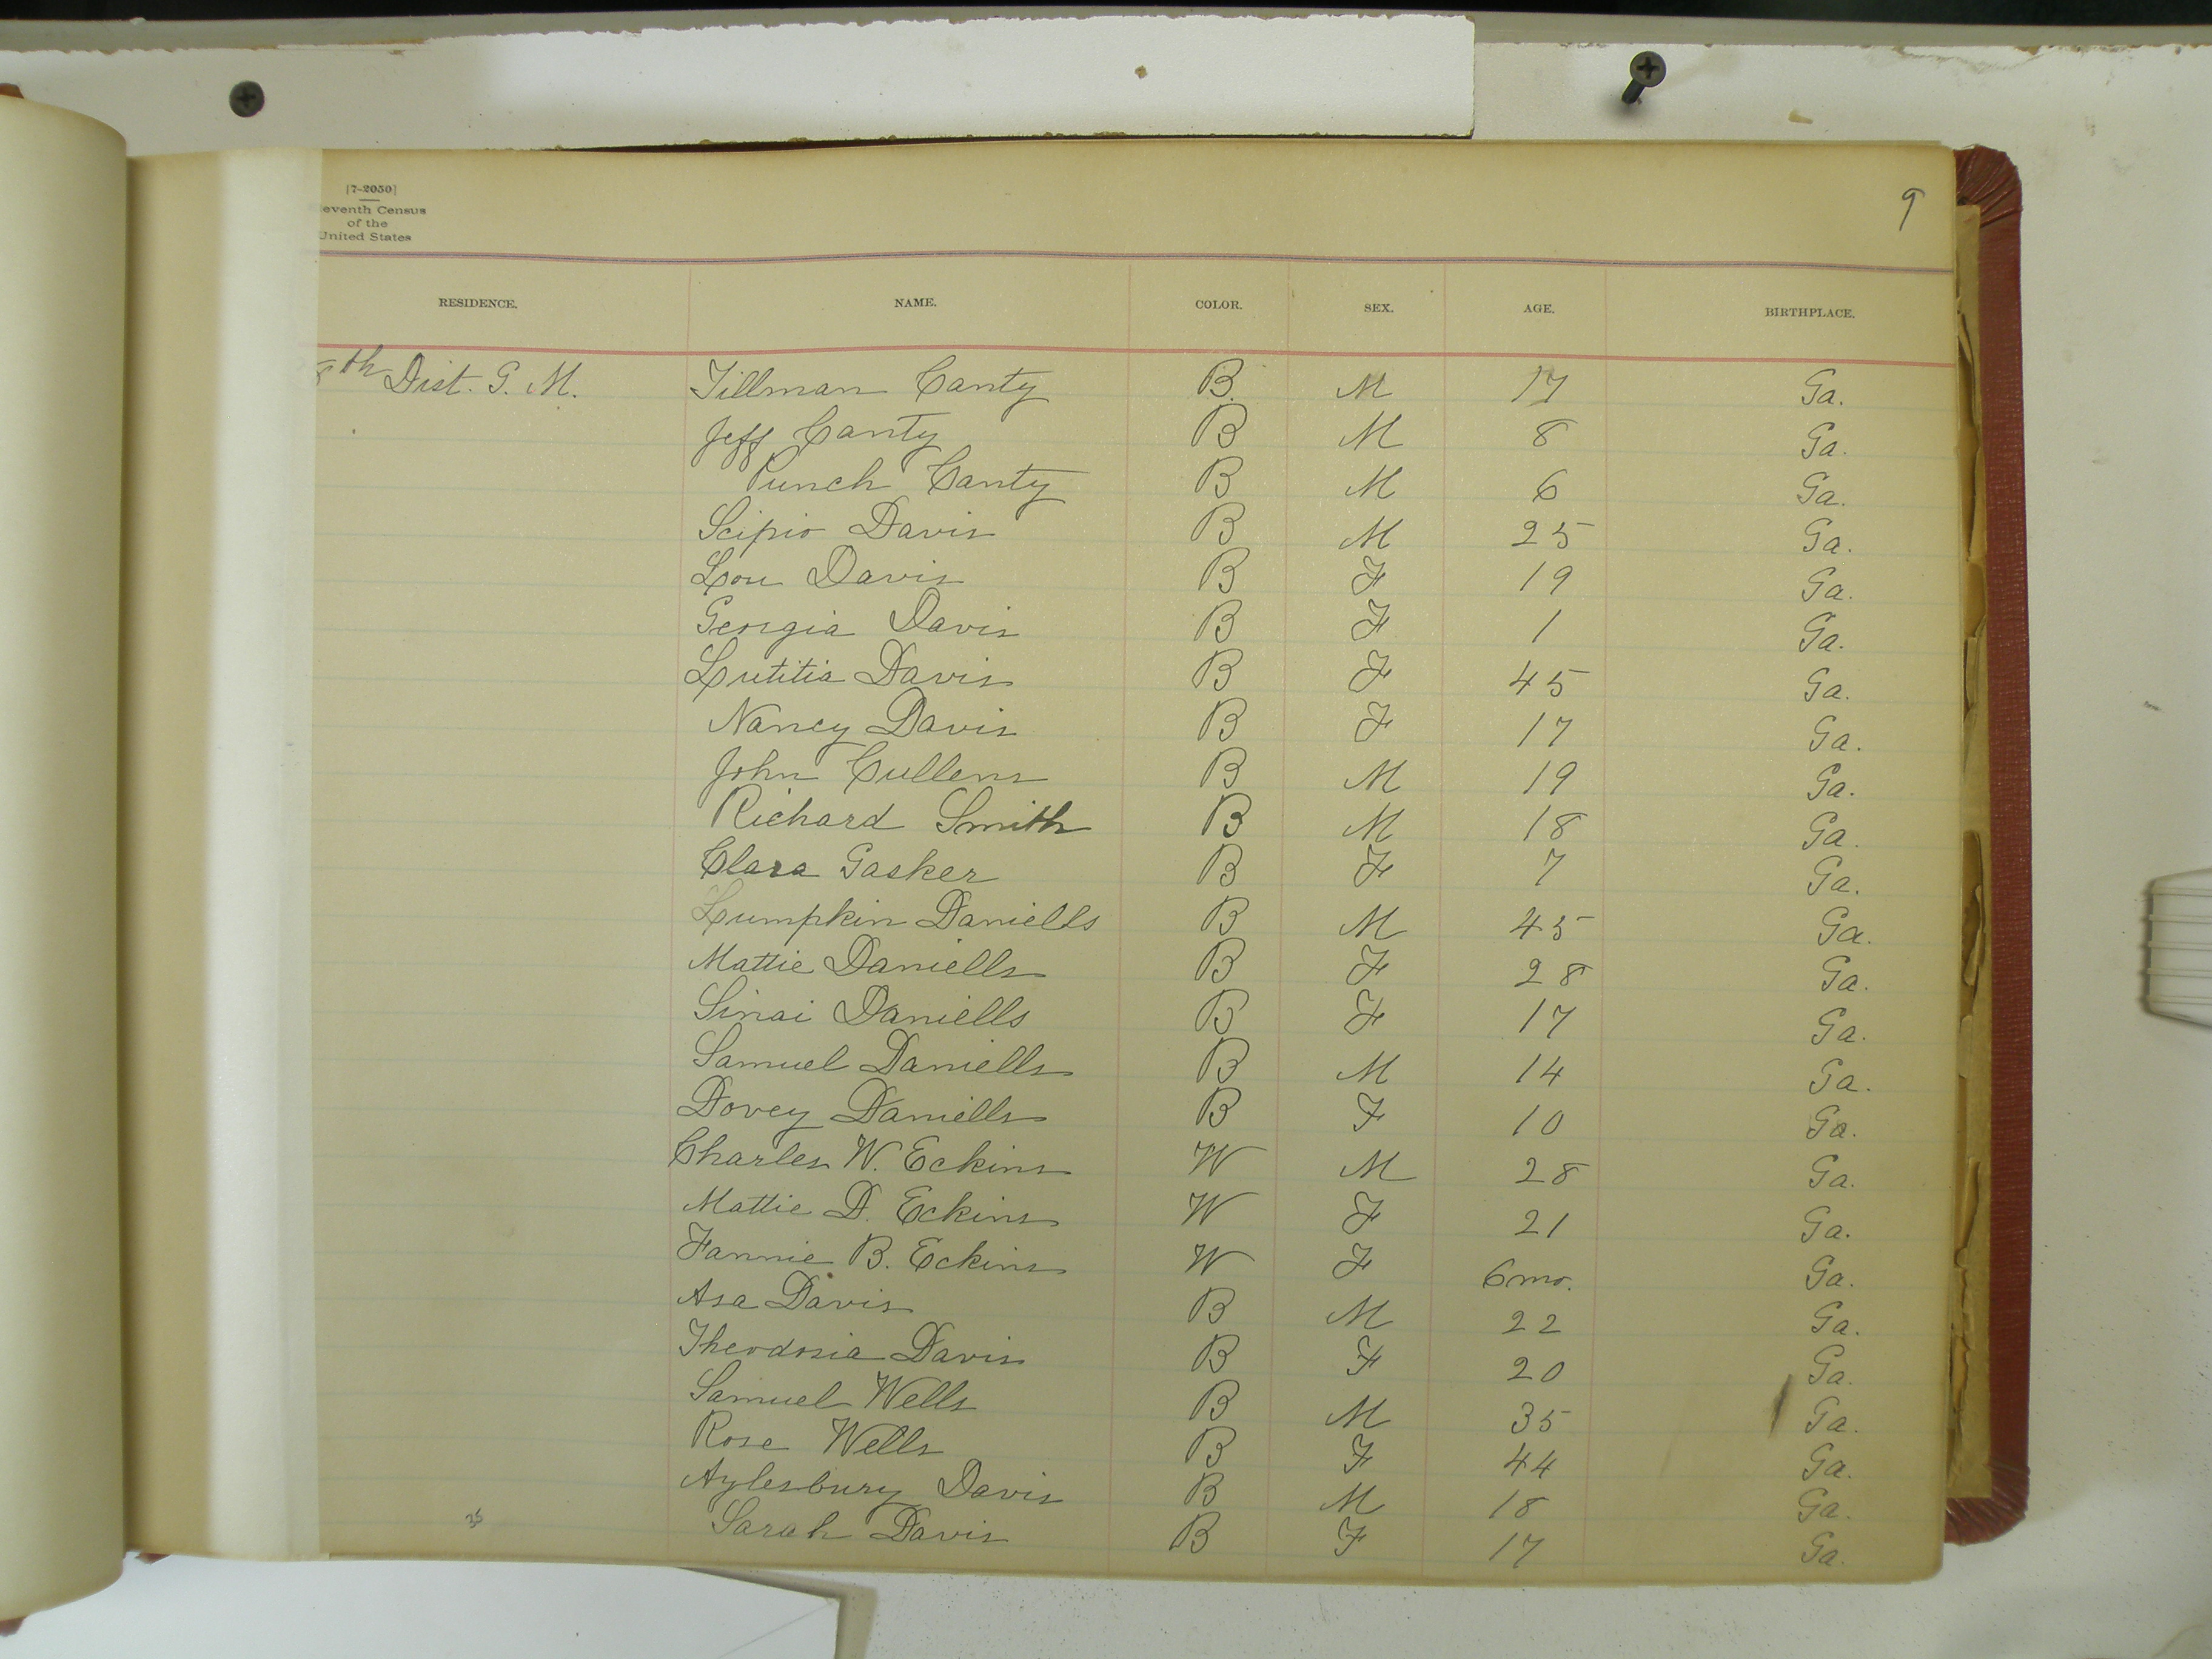 [7-2050]
leventh Census
of the
United States
9
RESIDENCE. NAME. COLOR. SEX. AGE. BIRTHPLACE.
8th Dist. G. M. Tillman Canty B. M 17 Ga.
Jeff Canty B M 8 Ga.
Punch Canty B M 6 Ga.
Scipio Davis B M 25 Ga.
Lou Davis B F 19 Ga.
Georgia Davis B F 1 Ga.
Lutitia Davis B F 45 Ga.
Nancy Davis B F 17 Ga.
John Cullens B M 19 Ga.
Richard Smith B M 18 Ga.
Clara Gasker B F 7 Ga.
Lumpkin Daniells B M 45 Ga.
Mattie Daniells B F 28 Ga.
Sinai Daniells B F 17 Ga.
Samuel Daniells B M 14 Ga.
Dovey Daniells B F 10 Ga.
Charles W. Eckins W M 28 Ga.
Mattie D. Eckins W F 21 Ga.
Fannie B. Eckins W F 6 mo. Ga.
Asa Davis B M 22 Ga.
Theodosia Davis B F 20 Ga.
Samuel Wells B M 35 Ga.
Rose Wells B F 44 Ga.
Aylesbury Davis B M 18 Ga.
25 Sarah Davis B F 17 Ga.